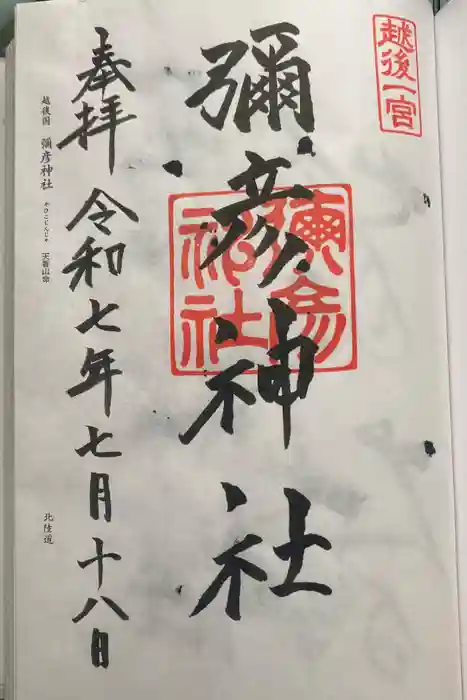 越後一宮
彌彦神社
彌彦神社
奉拝 令和七年七月十八日
越後国 彌彦神社 やひこじんじゃ 天香山命
北陸道